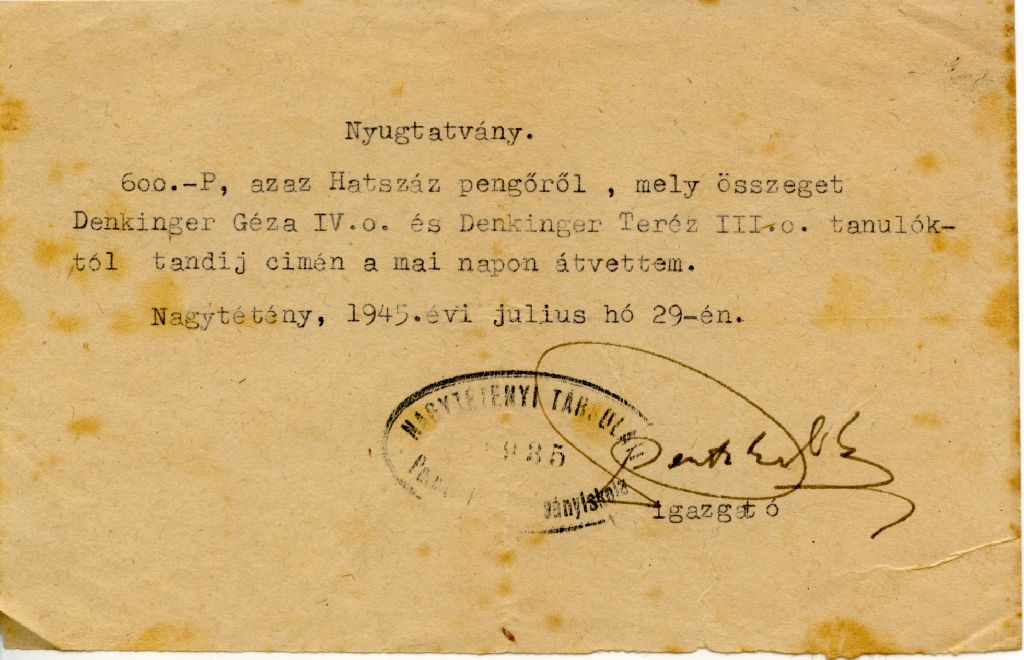 Nyugtatvány.
600.-P, azaz Hatszáz pengőről , mely összeget
Denkinger Géza IV.o. és Denkinger Teréz III.o. tanulók-
tól tandij cimén a mai napon átvettem.
Nagytétény, 1945.évi julius hó 29-én.
NAGYTÉTÉNYI
igazgató